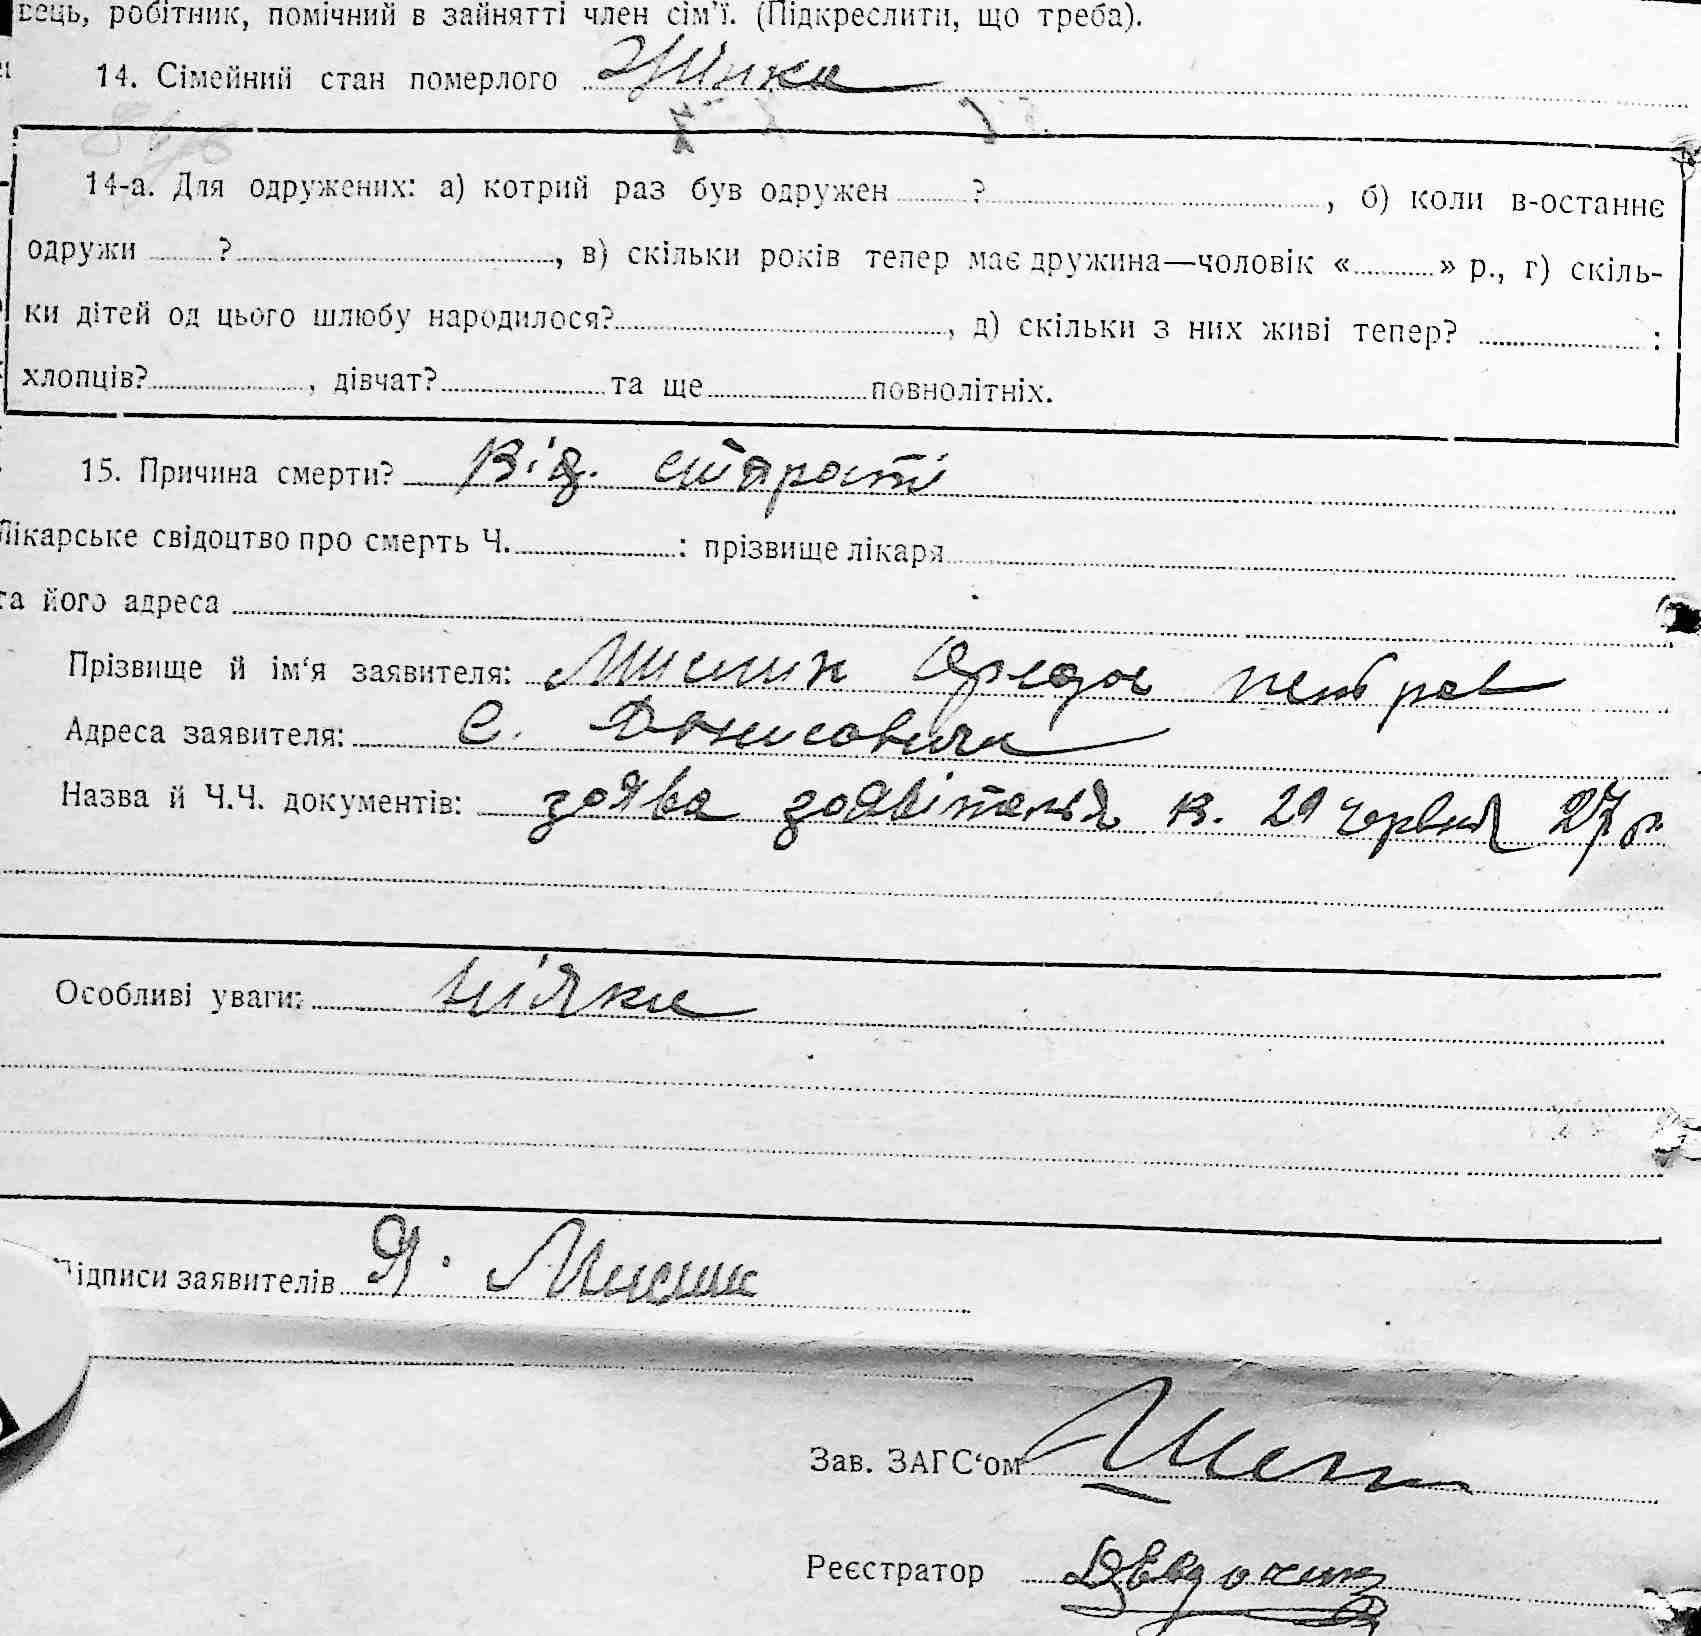 вець, робітник, помічний в зайнятті член сім'ї. (Підкреслити, що треба).
14. Сімейний стан померлого Жінка
14-а. Для одружених: а) котрий раз був одружен ? , б) коли в-останнє
одружи ? , в) скільки років тепер має дружина—чоловік « » р., г) скіль-
ки дітей од цього шлюбу народилося? , д) скільки з них живі тепер? :
хлопців? , дівчат? та ще повнолітніх.
15. Причина смерти? Від старості
Лікарське свідоцтво про смерть Ч. : прізвище лікаря
та його адреса
Прізвище й ім'я заявителя: Мисик
Адреса заявителя: С. Денисовичи
Назва й Ч.Ч. документів: заява заявітеля в. 29 червня 27 р.
Особливі уваги: ніяки
Підписи заявителів Я. Мисик
Зав. ЗАГС'ом
Реєстратор